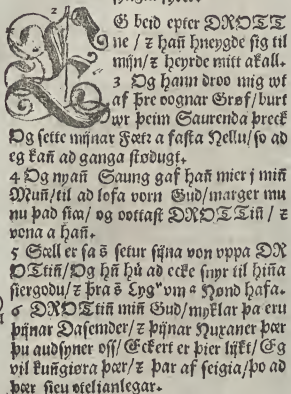 EG beid epter DROTT
ne / ꝛ hañ hneygde sig til
mijn / ꝛ heyrde mitt akall.
3 Og hann droo mig wt
af þre oognar Grøf / burt
wr þeim Saurenda preck
Og sette mijnar Fœtr a fasta Hellu / so ad
eg kañ ad ganga stodugt.
4 Og nyañ Saung gaf hañ mier j miñ
Muñ / til ad lofa vorn Gud / marger mu
nu þad siaa / og oottast DROTTiñ / ꝛ
vona a hañ.
5 Sæll er sa s̃ setur sijna von vppa DR
OTtiñ / Og hñ hủ ad ecke snyr til hiña
siergodu / ꝛ þra s̃ Lygͬ vm a Hønd hafa.
6 DROTtiñ miñ Gud / myklar þa eru
þijnar Dasemder / ꝛ þijnar Huxaner þær
þu audsyner oss / Eckert er þier lijkt / Eg
vil kuñgiøra þær / ꝛ þar af seigia / þo ad
þær sieu otelianlegar.